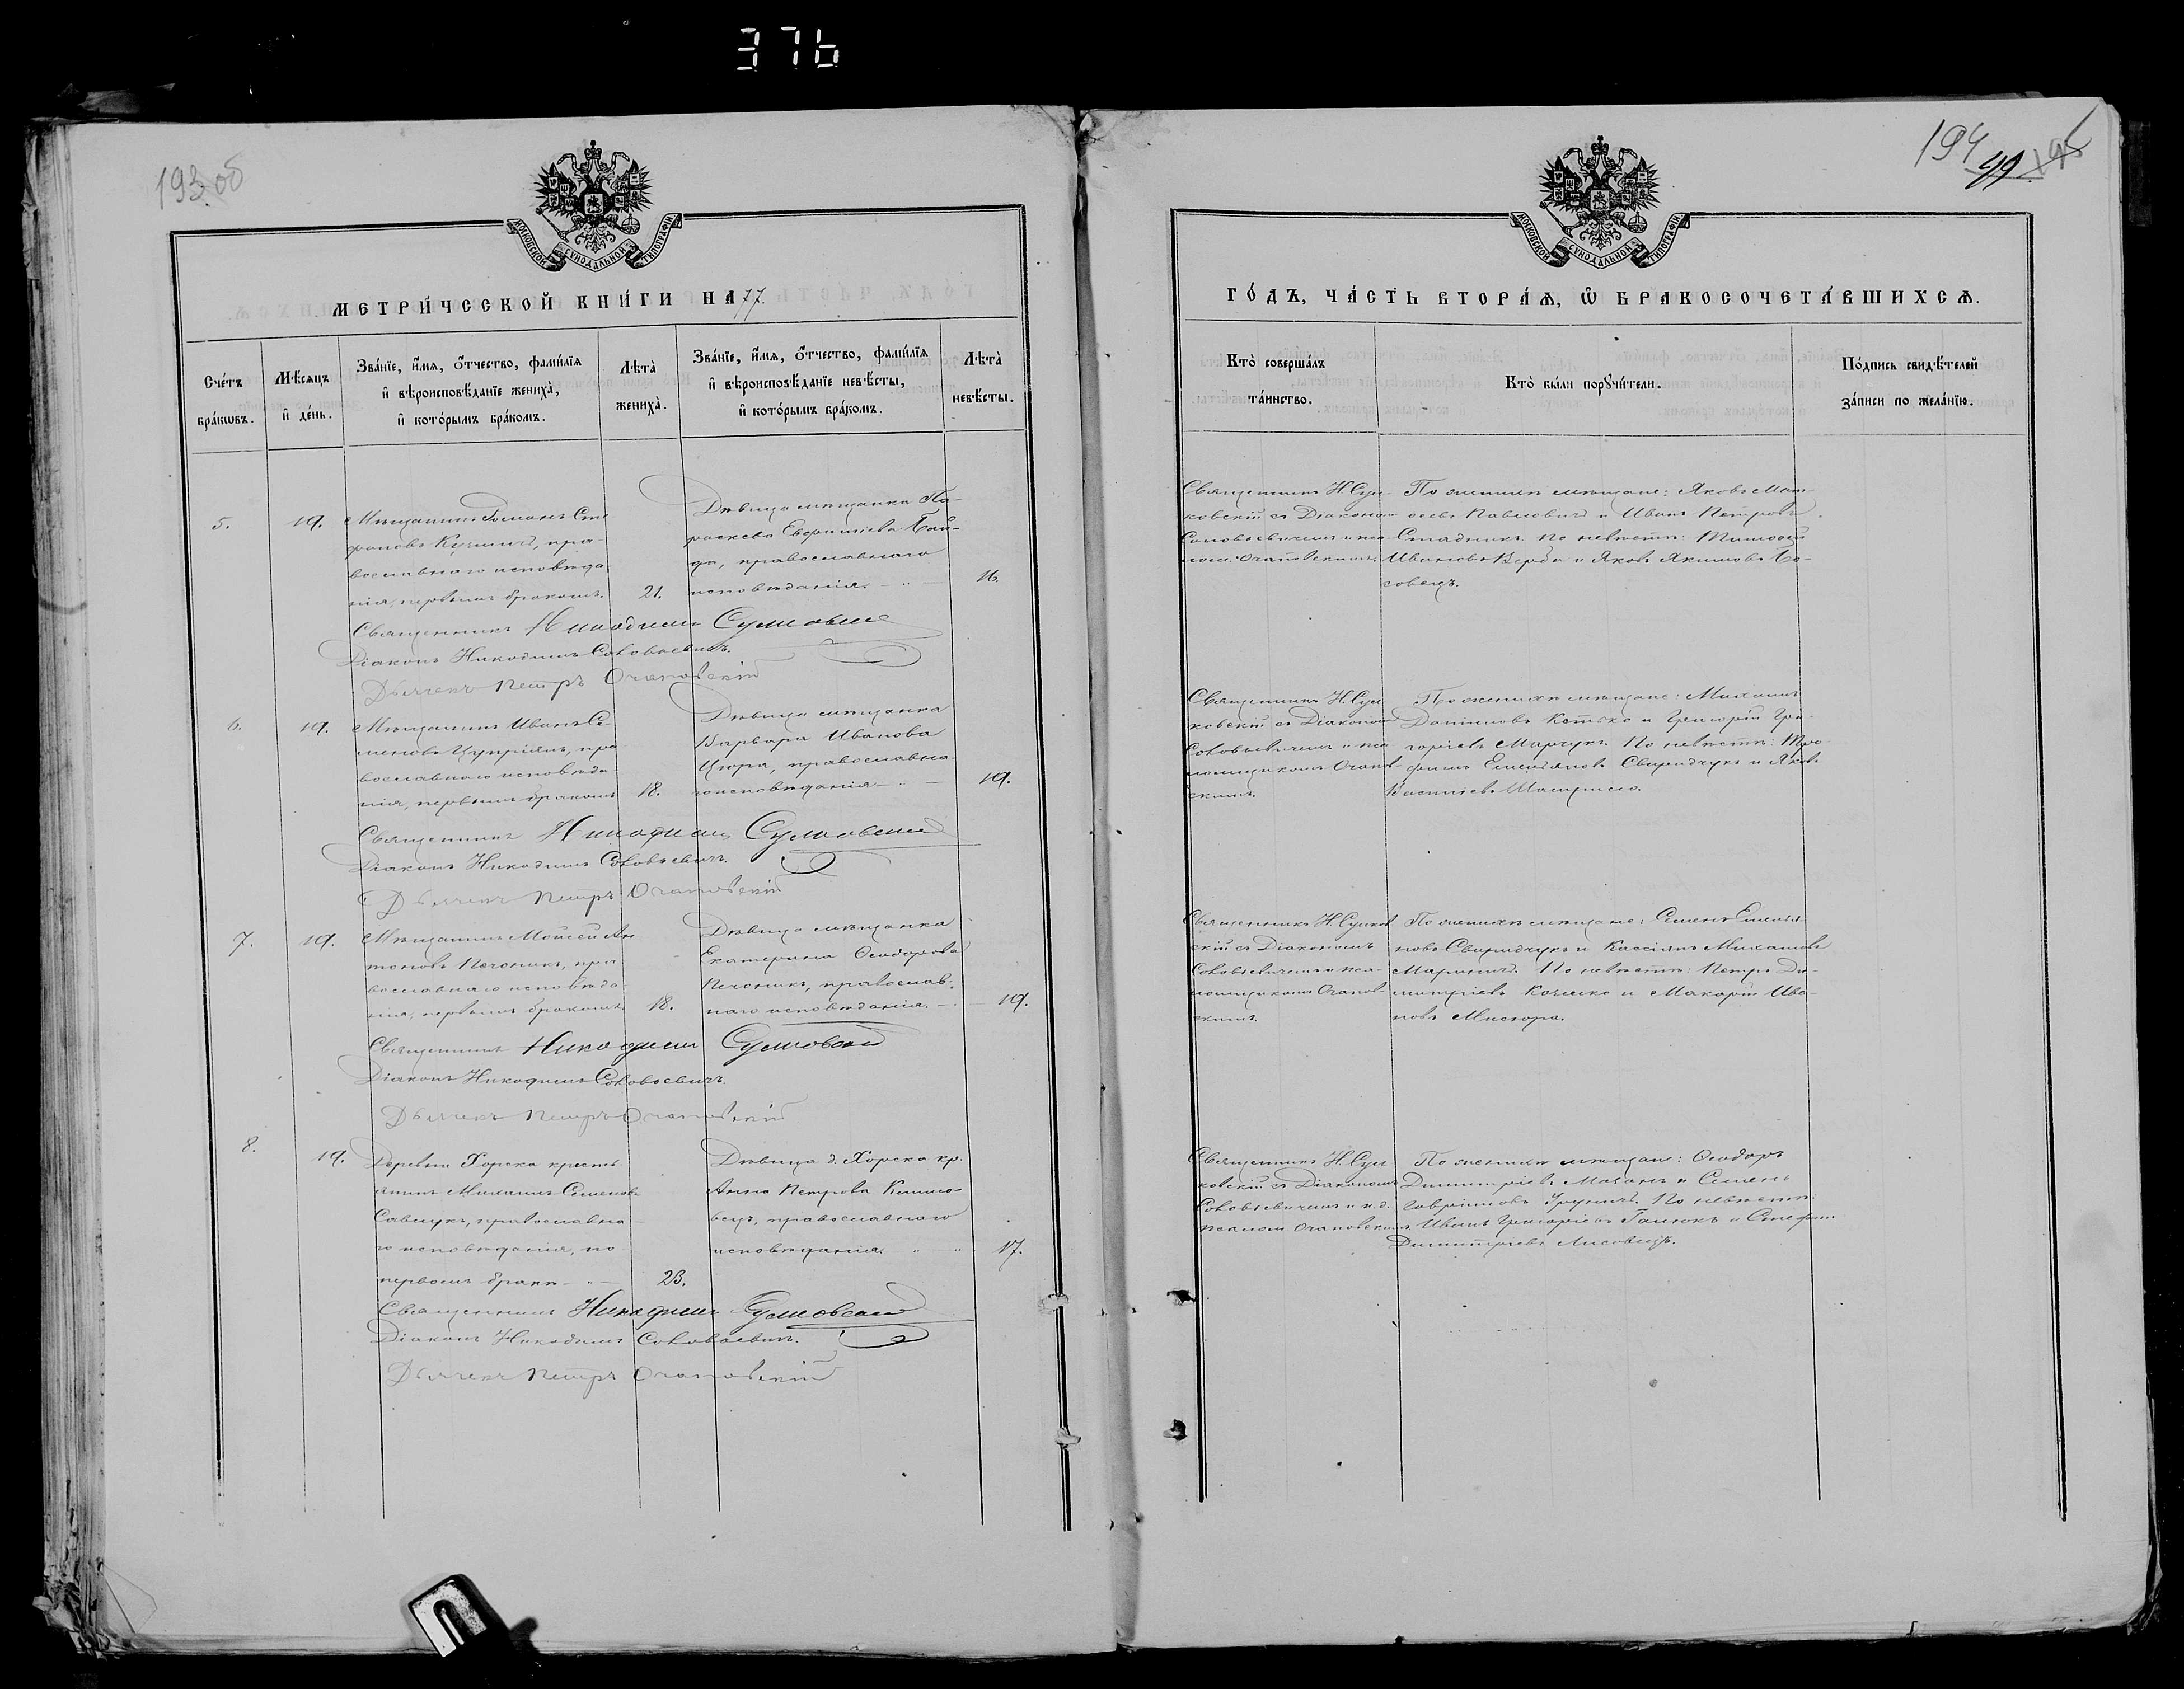 376
193 об
194
МОСКОВСКОЙ СѴНОДАЛЬНОЙ ТИПОГРАФІИ
МОСКОВСКОЙ СѴНОДАЛЬНОЙ ТИПОГРАФІИ
МЕТРИ́ЧЕСКОЙ КНИ́ГИ НА 77.
Сче́тъ бра́кωвъ.
Мѣ́сяцъ и҆ де́нь.
Зва́нїе, и҆́мѧ, ѻ҆́тчество, фами́лїѧ
и҆ вѣроисповѣ́данїе жениха̀,
и҆ кото́рымъ бра́комъ.
Лѣта̀ жениха̀.
Зва́нїе, и҆́мѧ, ѻ҆́тчество, фами́лїѧ
и҆ вѣроисповѣ́данїе невѣ́сты,
и҆ кото́рымъ бра́комъ.
Лѣта̀ невѣ́сты.
5.
19.
Мѣщанинъ Романъ Сте-
фановъ Кузмичъ, пра-
вославнаго исповѣда-
нія, первымъ бракомъ.
21.
Дѣвица мѣщанка Па-
раскева
православнаго
исповѣданія.
16.
Священникъ Никодимъ Сулковскій
Діаконъ Никодимъ Соловьевичъ.
Дьячекъ Петръ
6.
19.
Мѣщанинъ Иванъ Се-
меновъ Цупріянъ, пра-
вославнаго исповѣда-
нія, первымъ бракомъ
18.
Дѣвица мѣщанка
Варвара Иванова
Цюра, православна-
го исповѣданія
19.
Священникъ Никодимъ Сулковскій
Діаконъ Никодимъ Соловьевичъ.
Дьячекъ Петръ
7.
19.
Мѣщанинъ Моисей Ан-
тоновъ Печоникъ, пра-
вославнаго исповѣда-
нія, первымъ бракомъ
18.
Дѣвица мѣщанка
Екатерина Ѳеодорова
Печоникъ, православ-
наго исповѣданія.
19.
Священникъ Никодимъ Сулковскій
Діаконъ Никодимъ Соловьевичъ.
Дьячекъ Петръ
8.
19.
Деревни Хорска кресть-
янинъ Михаилъ Семеновъ
Савчукъ, православна-
го исповѣданія, по
первомъ бракѣ
23.
Дѣвица д. Хорска кр.
Анна Петрова Климо-
вецъ, православнаго
исповѣданія.
17.
Священникъ Никодимъ Сулковскій
Діаконъ Никодимъ Соловьевичъ.
Дьячекъ Петръ
ГО́ДЪ, ЧА́СТЬ ВТОРА́Ѧ, Ѽ БРАКОСОЧЕТА́ВШИХСѦ.
Кто̀ соверша́лъ та́инство.
Кто̀ бы́ли порꙋчи́тели.
По́дпись свидѣ́телей за́писи по жела́нїю.
Священникъ Н. Сул-
ковскій съ Діакономъ
Соловьевичемъ и
По женихѣ мѣщане: Яковъ Мат-
ѳеевъ Павловичъ и Иванъ Петровъ
Стадникъ. По невѣстѣ: Тимоѳей
Ивановъ Верба и Яковъ Якимовъ
Священникъ Н. Сул-
ковскій съ Діакономъ
Соловьевичемъ и пса-
ломщикомъ
скимъ.
По женихѣ мѣщане: Михаилъ
Даніиловъ и Григорій Гри-
горіевъ Марчукъ. По невѣстѣ: Тро-
фимъ Емельяновъ Свиридчукъ и Яковъ
Василіевъ
Священникъ Н. Сулков-
скій съ Діакономъ
Соловьевичемъ и пса-
ломщикомъ
скимъ.
По женихѣ мѣщане: Семенъ Емелья-
новъ Свиридчукъ и Кассіянъ Михаиловъ
Мариничъ. По невѣстѣ: Петръ Ди-
митріевъ и Макарій Ива-
новъ Мисюра.
Священникъ Н. Сул-
ковскій съ Діакономъ
Соловьевичемъ и и.д.
По женихѣ мѣщане: Ѳеодоръ
Димитріевъ и Семенъ
Гавріиловъ По невѣстѣ:
Иванъ Григоріевъ и Стефанъ
Димитріевъ Лисовецъ.